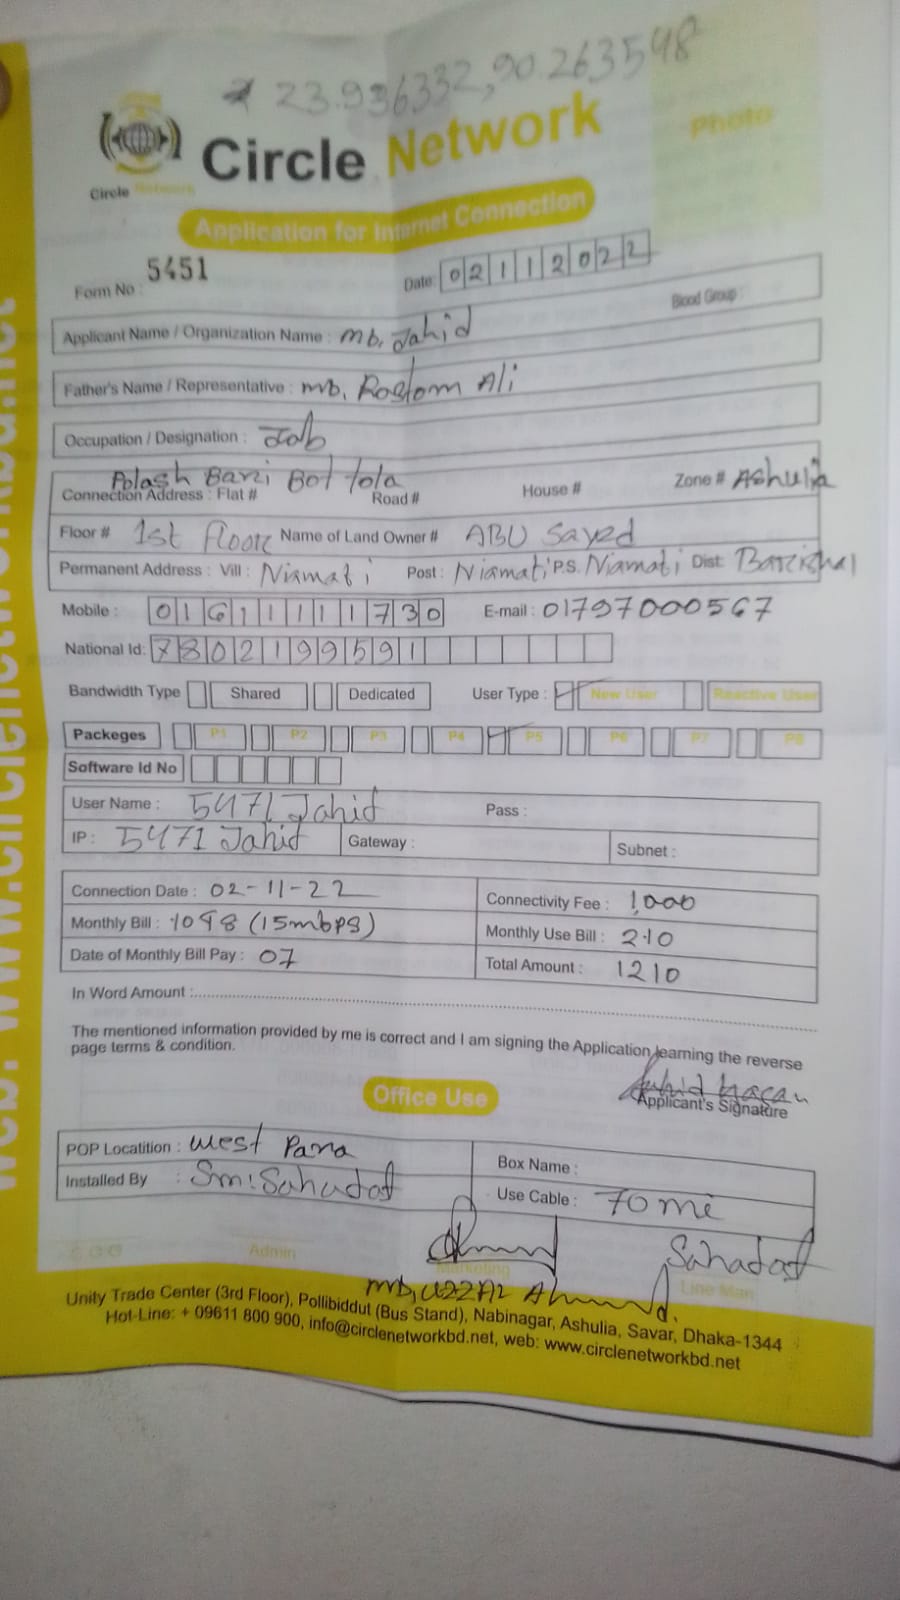 * 23.936332, 90.263548
Circle Network
Circle Network
Photo
Application for Internet Connection
Form No : 5451
Date: 02112022
Blood Group :
Applicant Name / Organization Name : MD. Jahid
Father's Name / Representative : MD. Rostom Ali
Occupation / Designation : Job
Polash Bari Bot tola
Connection Address : Flat # Road # House # Zone # Ashulia
Floor # 1st Floor Name of Land Owner # ABU Sayed
Permanent Address : Vill : Niamati Post : Niamati P.S. Niamati Dist: Barishal
Mobile : 01611111730 E-mail : 01797000567
National Id: 7802199591
Bandwidth Type Shared Dedicated User Type : New User Reactive User
Packeges P1 P2 P3 P4 P5 P6 P7 P8
Software Id No
User Name : 5471 Jahid Pass :
IP : 5471 Jahid Gateway : Subnet :
Connection Date : 02-11-22 Connectivity Fee : 1,000
Monthly Bill : 1098 (15mbps) Monthly Use Bill : 210
Date of Monthly Bill Pay : 07 Total Amount : 1210
In Word Amount :
The mentioned information provided by me is correct and I am signing the Application learning the reverse
page terms & condition.
Applicant's Signature
Office Use
POP Locatition : West Para Box Name :
Installed By : Sm: Sahadat Use Cable : 70 mi
Sahadat
Admin Marketing Line Man
MD, UZZAL Ahmmed.
Unity Trade Center (3rd Floor), Pollibiddut (Bus Stand), Nabinagar, Ashulia, Savar, Dhaka-1344
Hot-Line: + 09611 800 900, info@circlenetworkbd.net, web: www.circlenetworkbd.net
web: www.circlenetworkbd.net